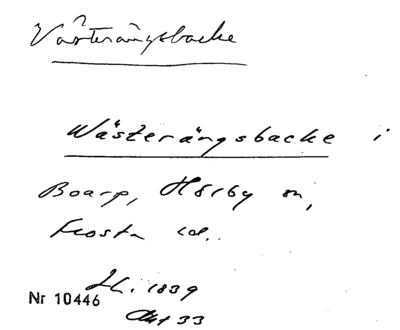 Västerängsbacke
Wästerängsbacke i
Boarp, Hörby sn,
Frosta hd.
1839
Nr 10446
Akt 33